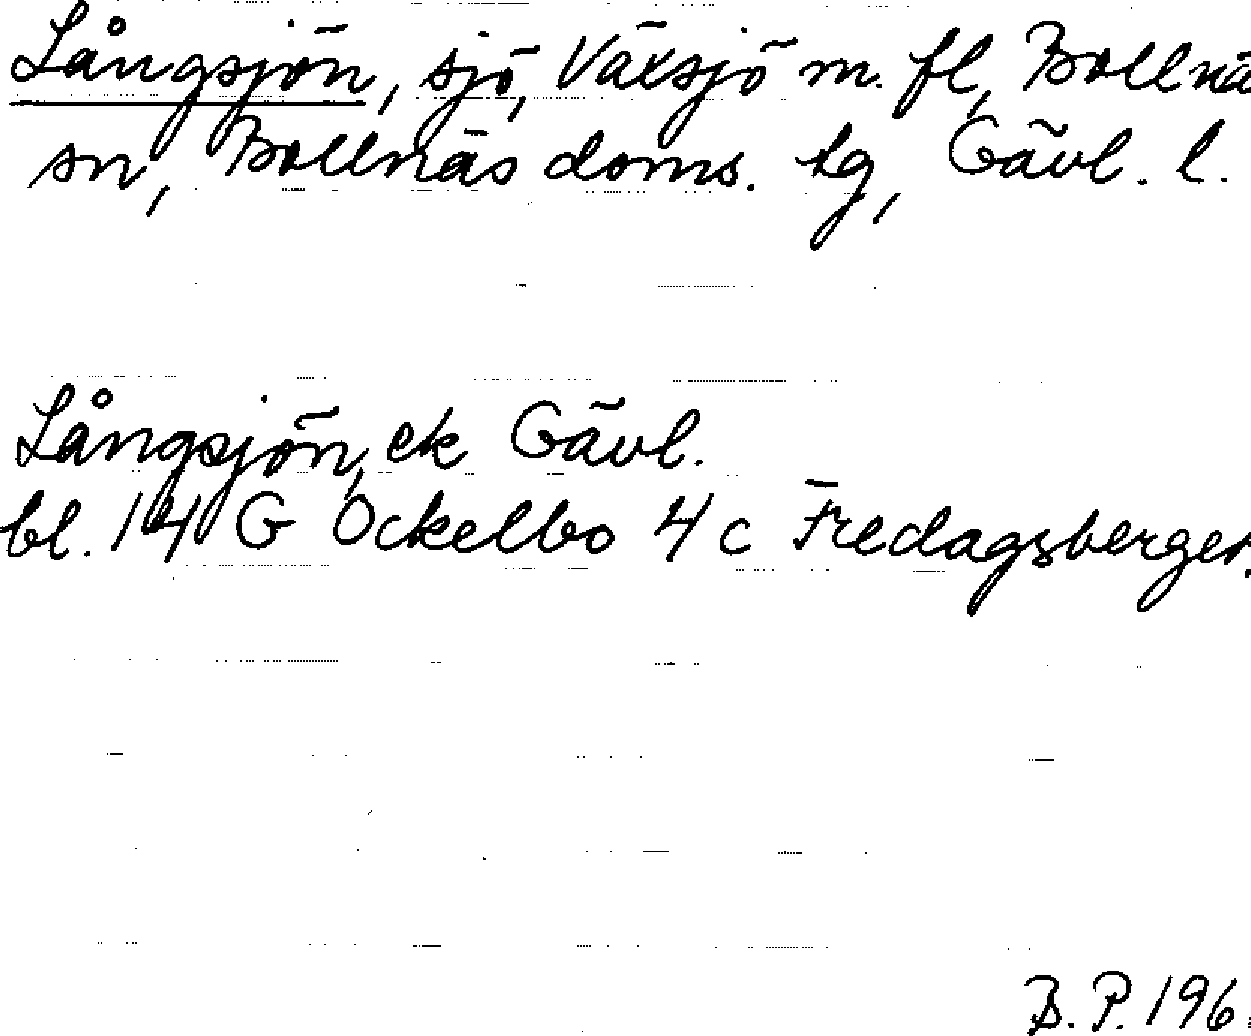 Långsjön, sjö, Växsjö m. fl, Bollnä
sn, Bollnäs doms. tg, Gävl. l.
Långsjön, ek Gävl.
bl. 14 G Ockelbo 4 c Fredagsberget.
B. P. 196